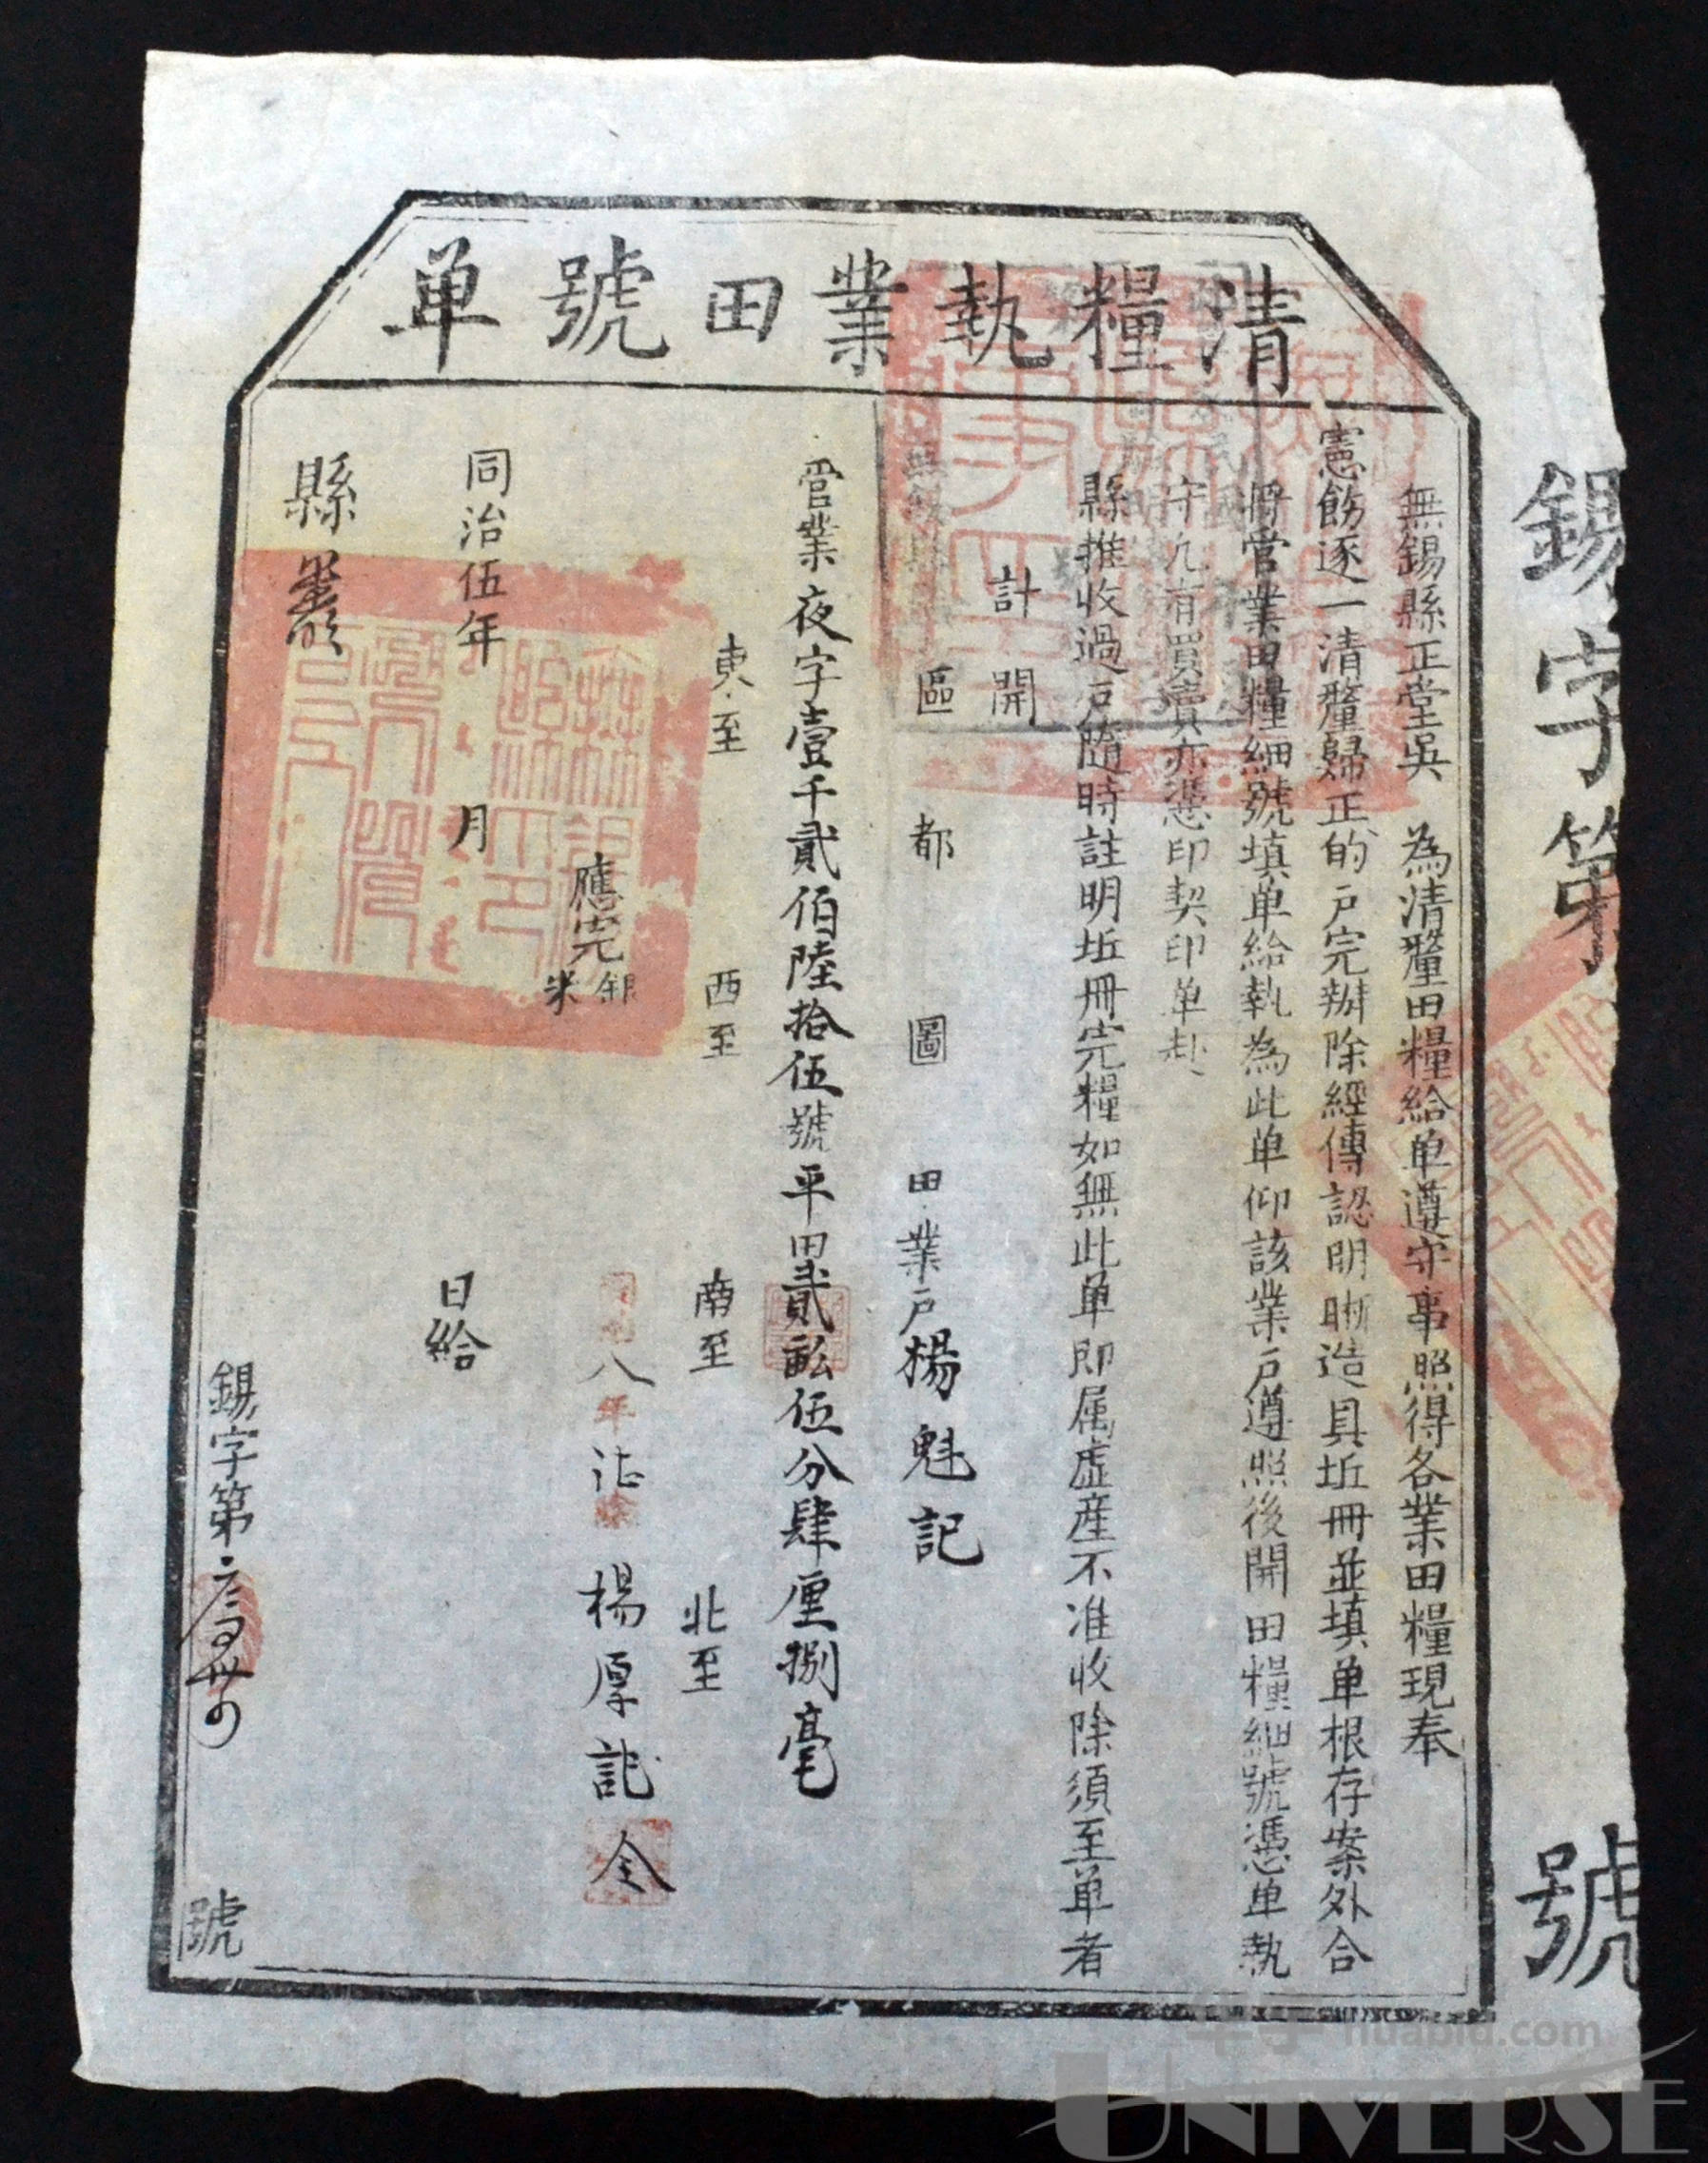 清糧執業田號单
錫字第
號
無錫縣正堂吳 為清釐田糧給单遵守事照得各業田糧現奉
憲飭逐一清釐歸正的户完辦除經傳認明晰造具坵冊並填单根存案外合
將管業田糧細號填单給執為此单仰該業户遵照後開田糧細號憑单執
守凢有買賣亦憑印契印单赴
縣推收過户隨時註明坵冊完糧如無此单即属虛產不准收除須至单者
計開
區 都 圖 田業户楊魁記
管業夜字壹千貳伯陸拾伍號平田貳畝伍分肆厘捌毫
東至 西至 南至 北至
應完
銀
米
八年 楊厚記 全
同治伍年 月 日給
縣
錫字第
號
huabid.com
UNIVERSE